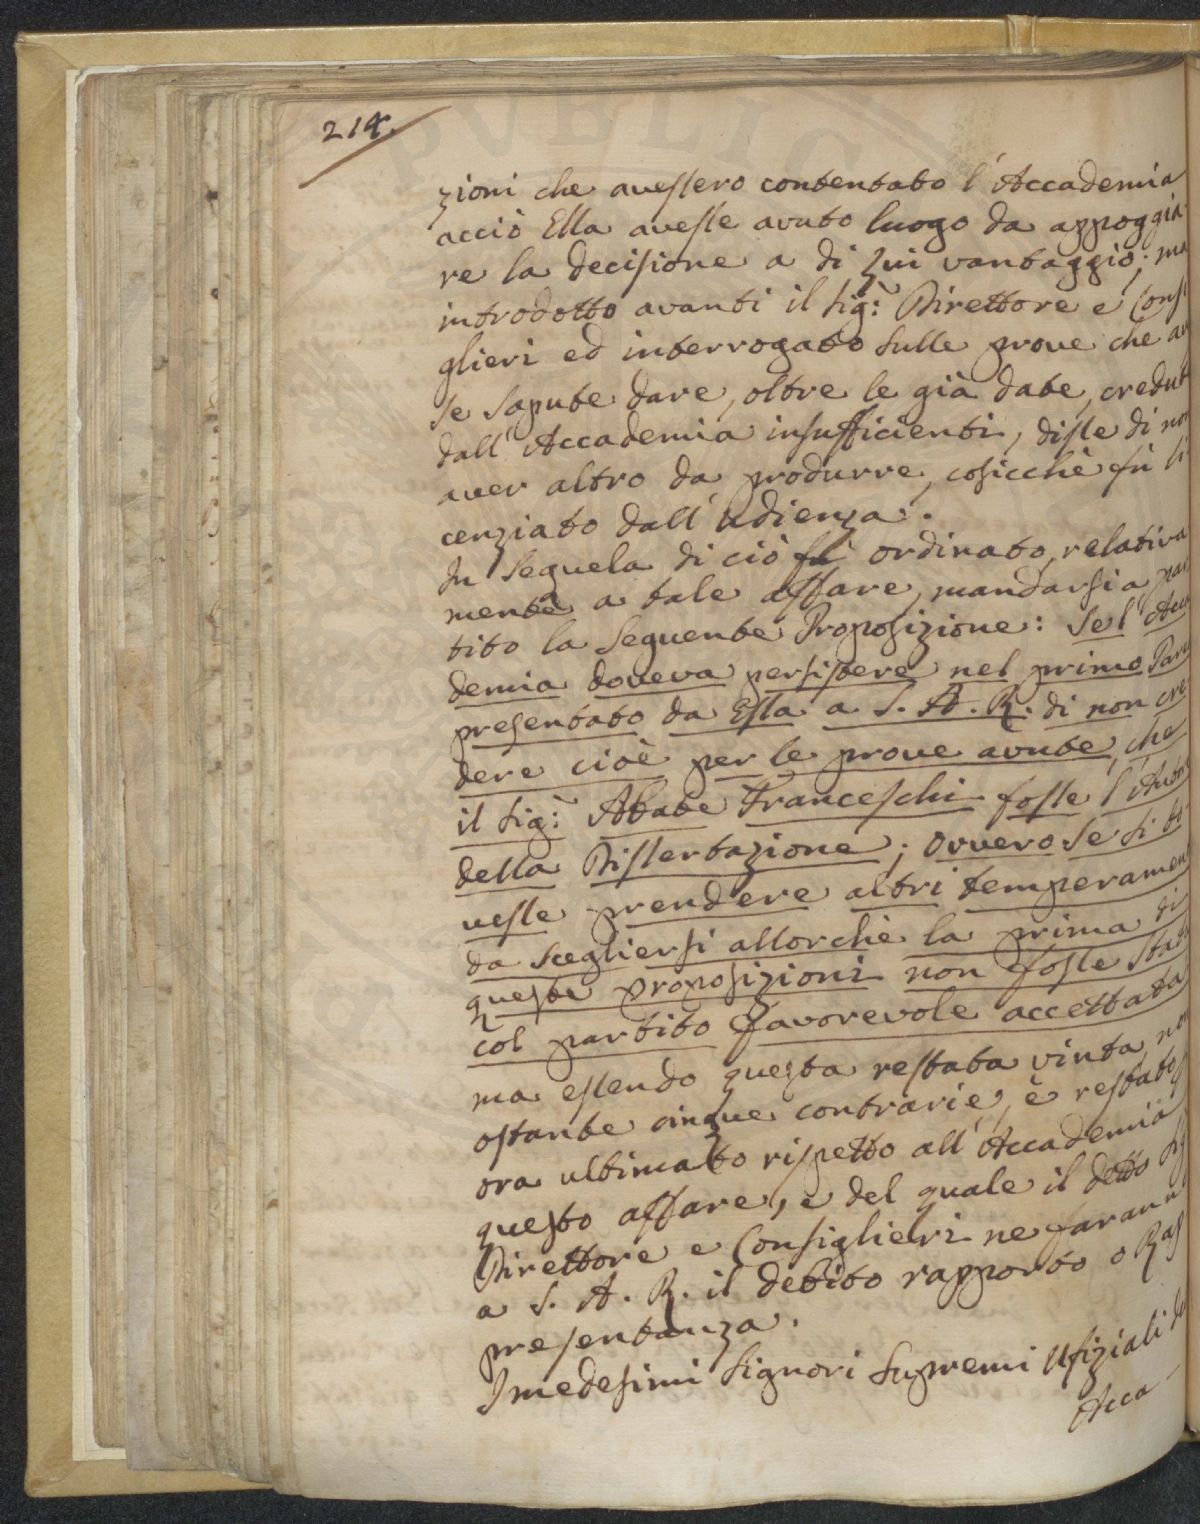 214.
zioni che avessero contentato l'Accademia
acciò Ella avesse avuto luogo da appoggia-
re la decisione a di lui vantaggio; ma
introdotto avanti il Sig:r Direttore e Consi
glieri ed interrogato sulle prove che av
se sapute dare, oltre le già date, credut
dall'Accademia insufficienti, disse di non
aver altro da produrre, cosicchè fù li
cenziato dall'Udienza.
In sequela di ciò fù ordinato, relativa
mente a tale affare, mandarsi a par
tito la seguente Proposizione: Se l'Acca
demia doveva persistere nel primo Pare
presentato da Essa a S. A. R. di non cre
dere cioè per le prove avute, che
il Sig:r Abate Franceschi fosse l'Autore
della Dissertazione; Ovvero se si do
vesse prendere altri temperamen
da scegliersi allorchè la prima di
queste proposizioni non fosse stata
col partito favorevole accettata
ma essendo questa restata vinta, non
ostante cinque contrarie, è restato
ora ultimato rispetto all'Accademia
questo affare, e del quale il detto Sig
Direttore e Consiglieri ne faranno
a S. A. R. il debito rapporto o Rap
presentanza.
I medesimi Signori Supremi Ufiziali de
Acca